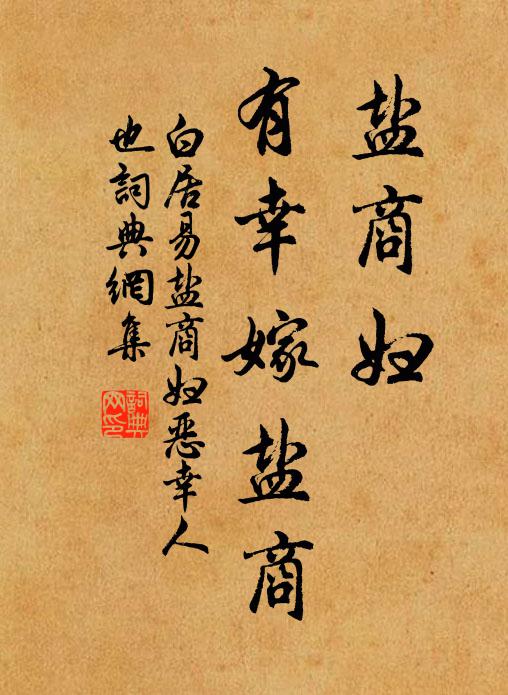 盐商妇
有幸嫁盐商
白居易盐商妇恶幸人
也詞典網集
詞典
网印